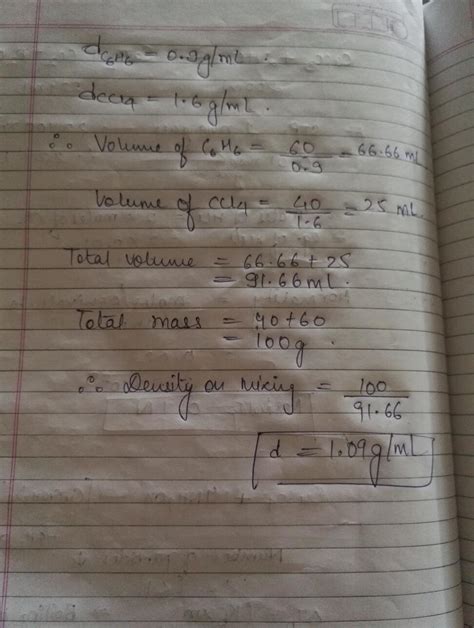 dC6H6 = 0.9g/mL
dCCl4 = 1.6g/mL.
∴ Volume of C6H6 = 60/0.9 = 66.66 mL
Volume of CCl4 = 40/1.6 = 25 mL.
Total volume = 66.66 + 25
= 91.66mL.
Total mass = 40+60
= 100g.
∴ Density on mixing = 100/91.66
d = 1.09g/mL